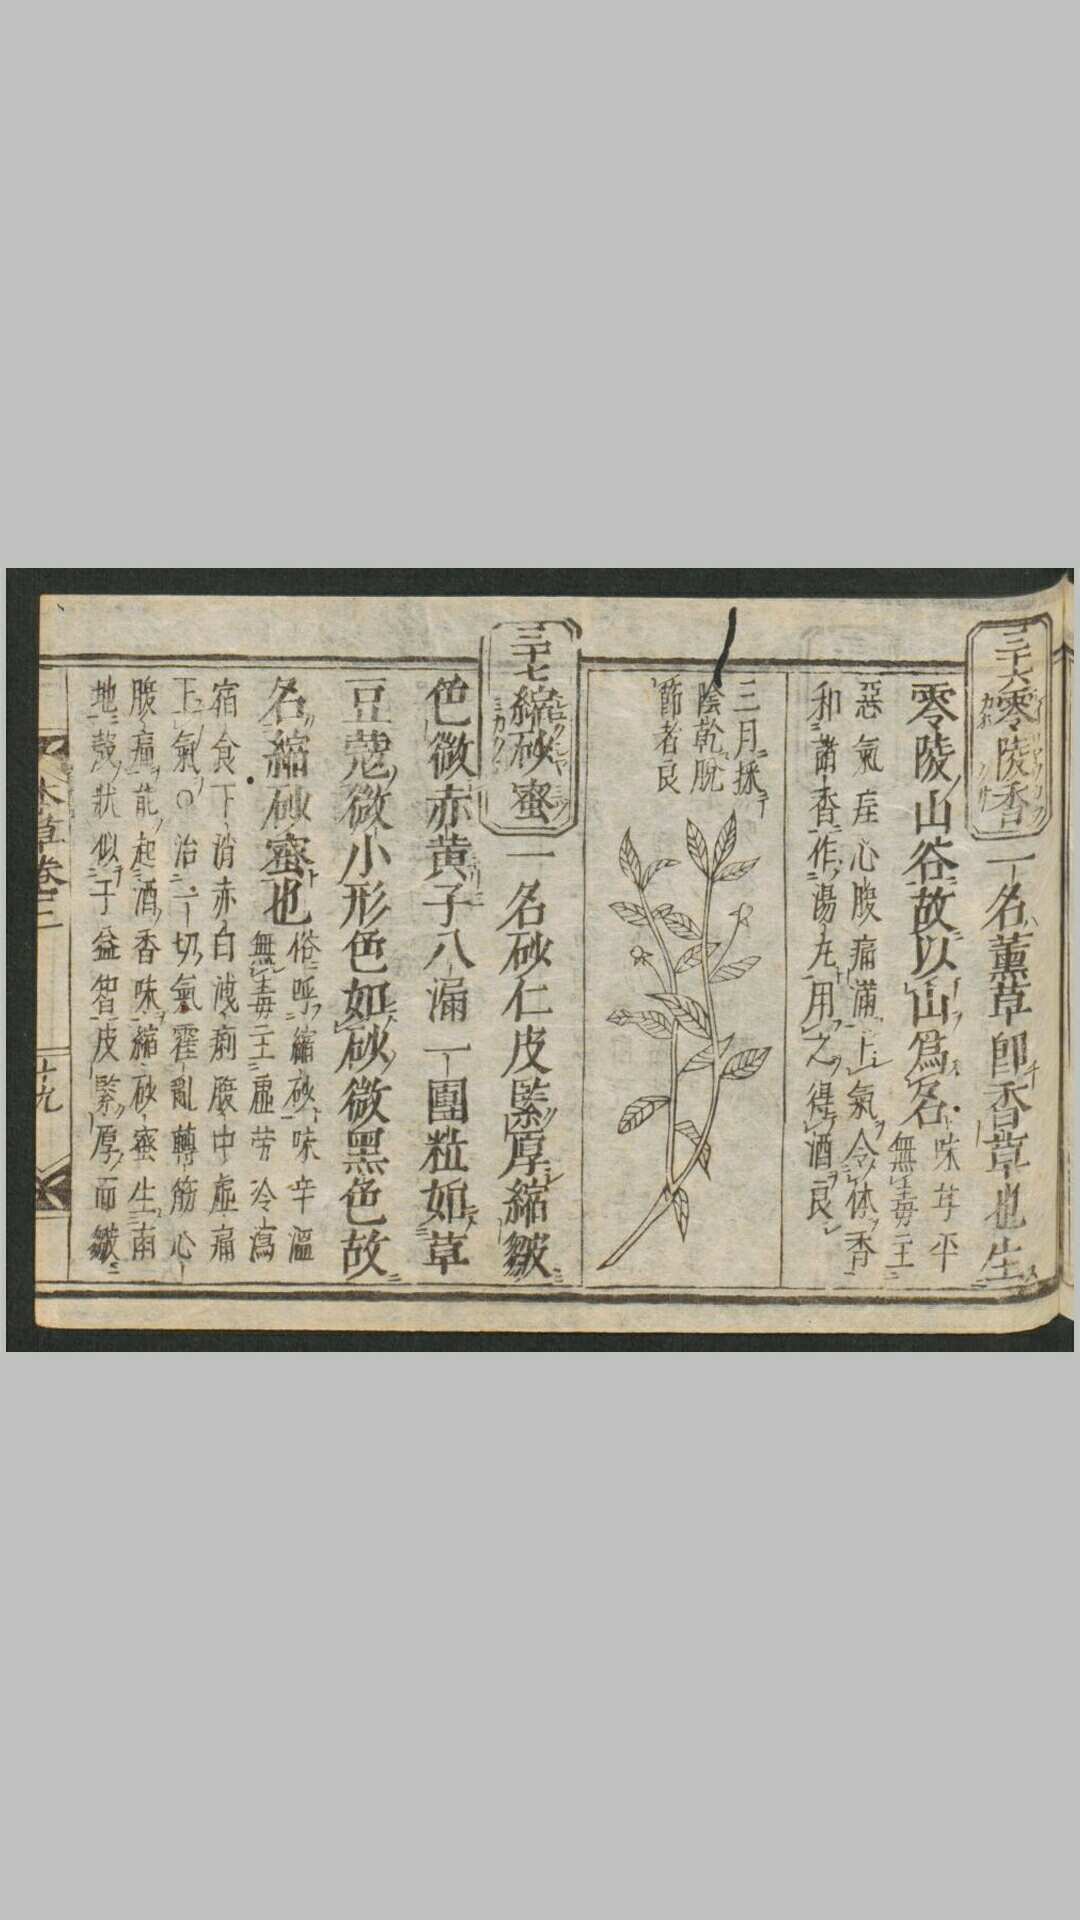 三十六零陵香
一名薫草即香草也生
零陵山谷故以山爲名
味甘平
無毒主
惡氣疰心腹痛滿上氣令体香
和諸香作湯丸用之得酒良
三月採
陰乾脫
節者良
三十七縮砂蜜
一名砂仁皮緊厚縮皺
色微赤黄子八漏一團粒如草
豆蔻微小形色如砂微黑色故
名縮砂蜜也
俗呼縮砂味辛溫
無毒主虛劳冷瀉
宿食下消赤白洩痢腹中虛痛
上氣○治一切氣霍亂轉筋心
腹痛能起酒香味縮砂蜜生南
地殼狀似子益智皮緊厚而皺
本草卷三
十九